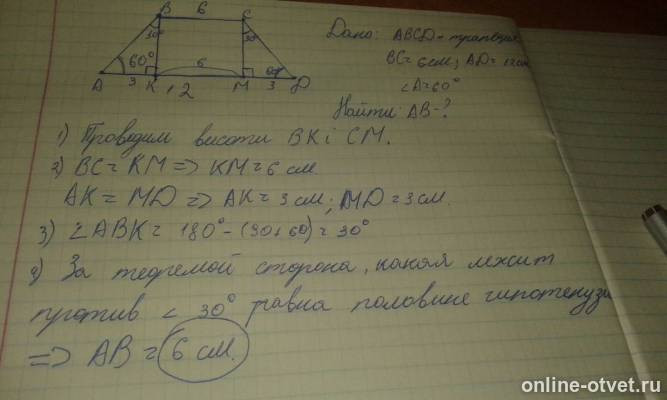 B 6 C
30° 30°
60° 6 60°
A 3 K 12 M 3 D
Дано: ABCD - трапеция
BC = 6 см; AD = 12 см
∠A = 60°
Найти: AB - ?
1) Проводим висоти BK і CM.
2) BC = KM => KM = 6 см
AK = MD => AK = 3 см; MD = 3 см.
3) ∠ABK = 180° - (90 + 60) = 30°
4) За теоремой сторона, какая лежит
против ∠ 30° равна половине гипотенузи
=> AB = 6 см.
online-otvet.ru